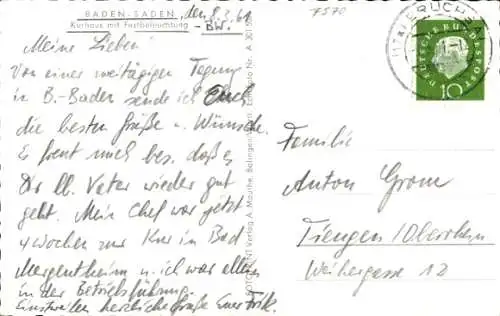 BADEN-BADEN
Kurhaus mit Festbeleuchtung
BW.
7570
Meine Lieben!
Von einer zweitägigen Tagung
in B.-Baden sende ich Euch
die besten Grüße u. Wünsche.
Es freut mich bes. daß es
Dir lb. Vater wieder gut
geht. Mein Chef war jetzt
4 Wochen zur Kur in Bad
Mergentheim u. ich war allein
in der Betriebsführung.
Einstweilen herzliche Grüße Euer
DEUTSCHE BUNDESPOST
10
Familie
Anton Grom
Tiengen/Oberrhein
Weihergasse 12